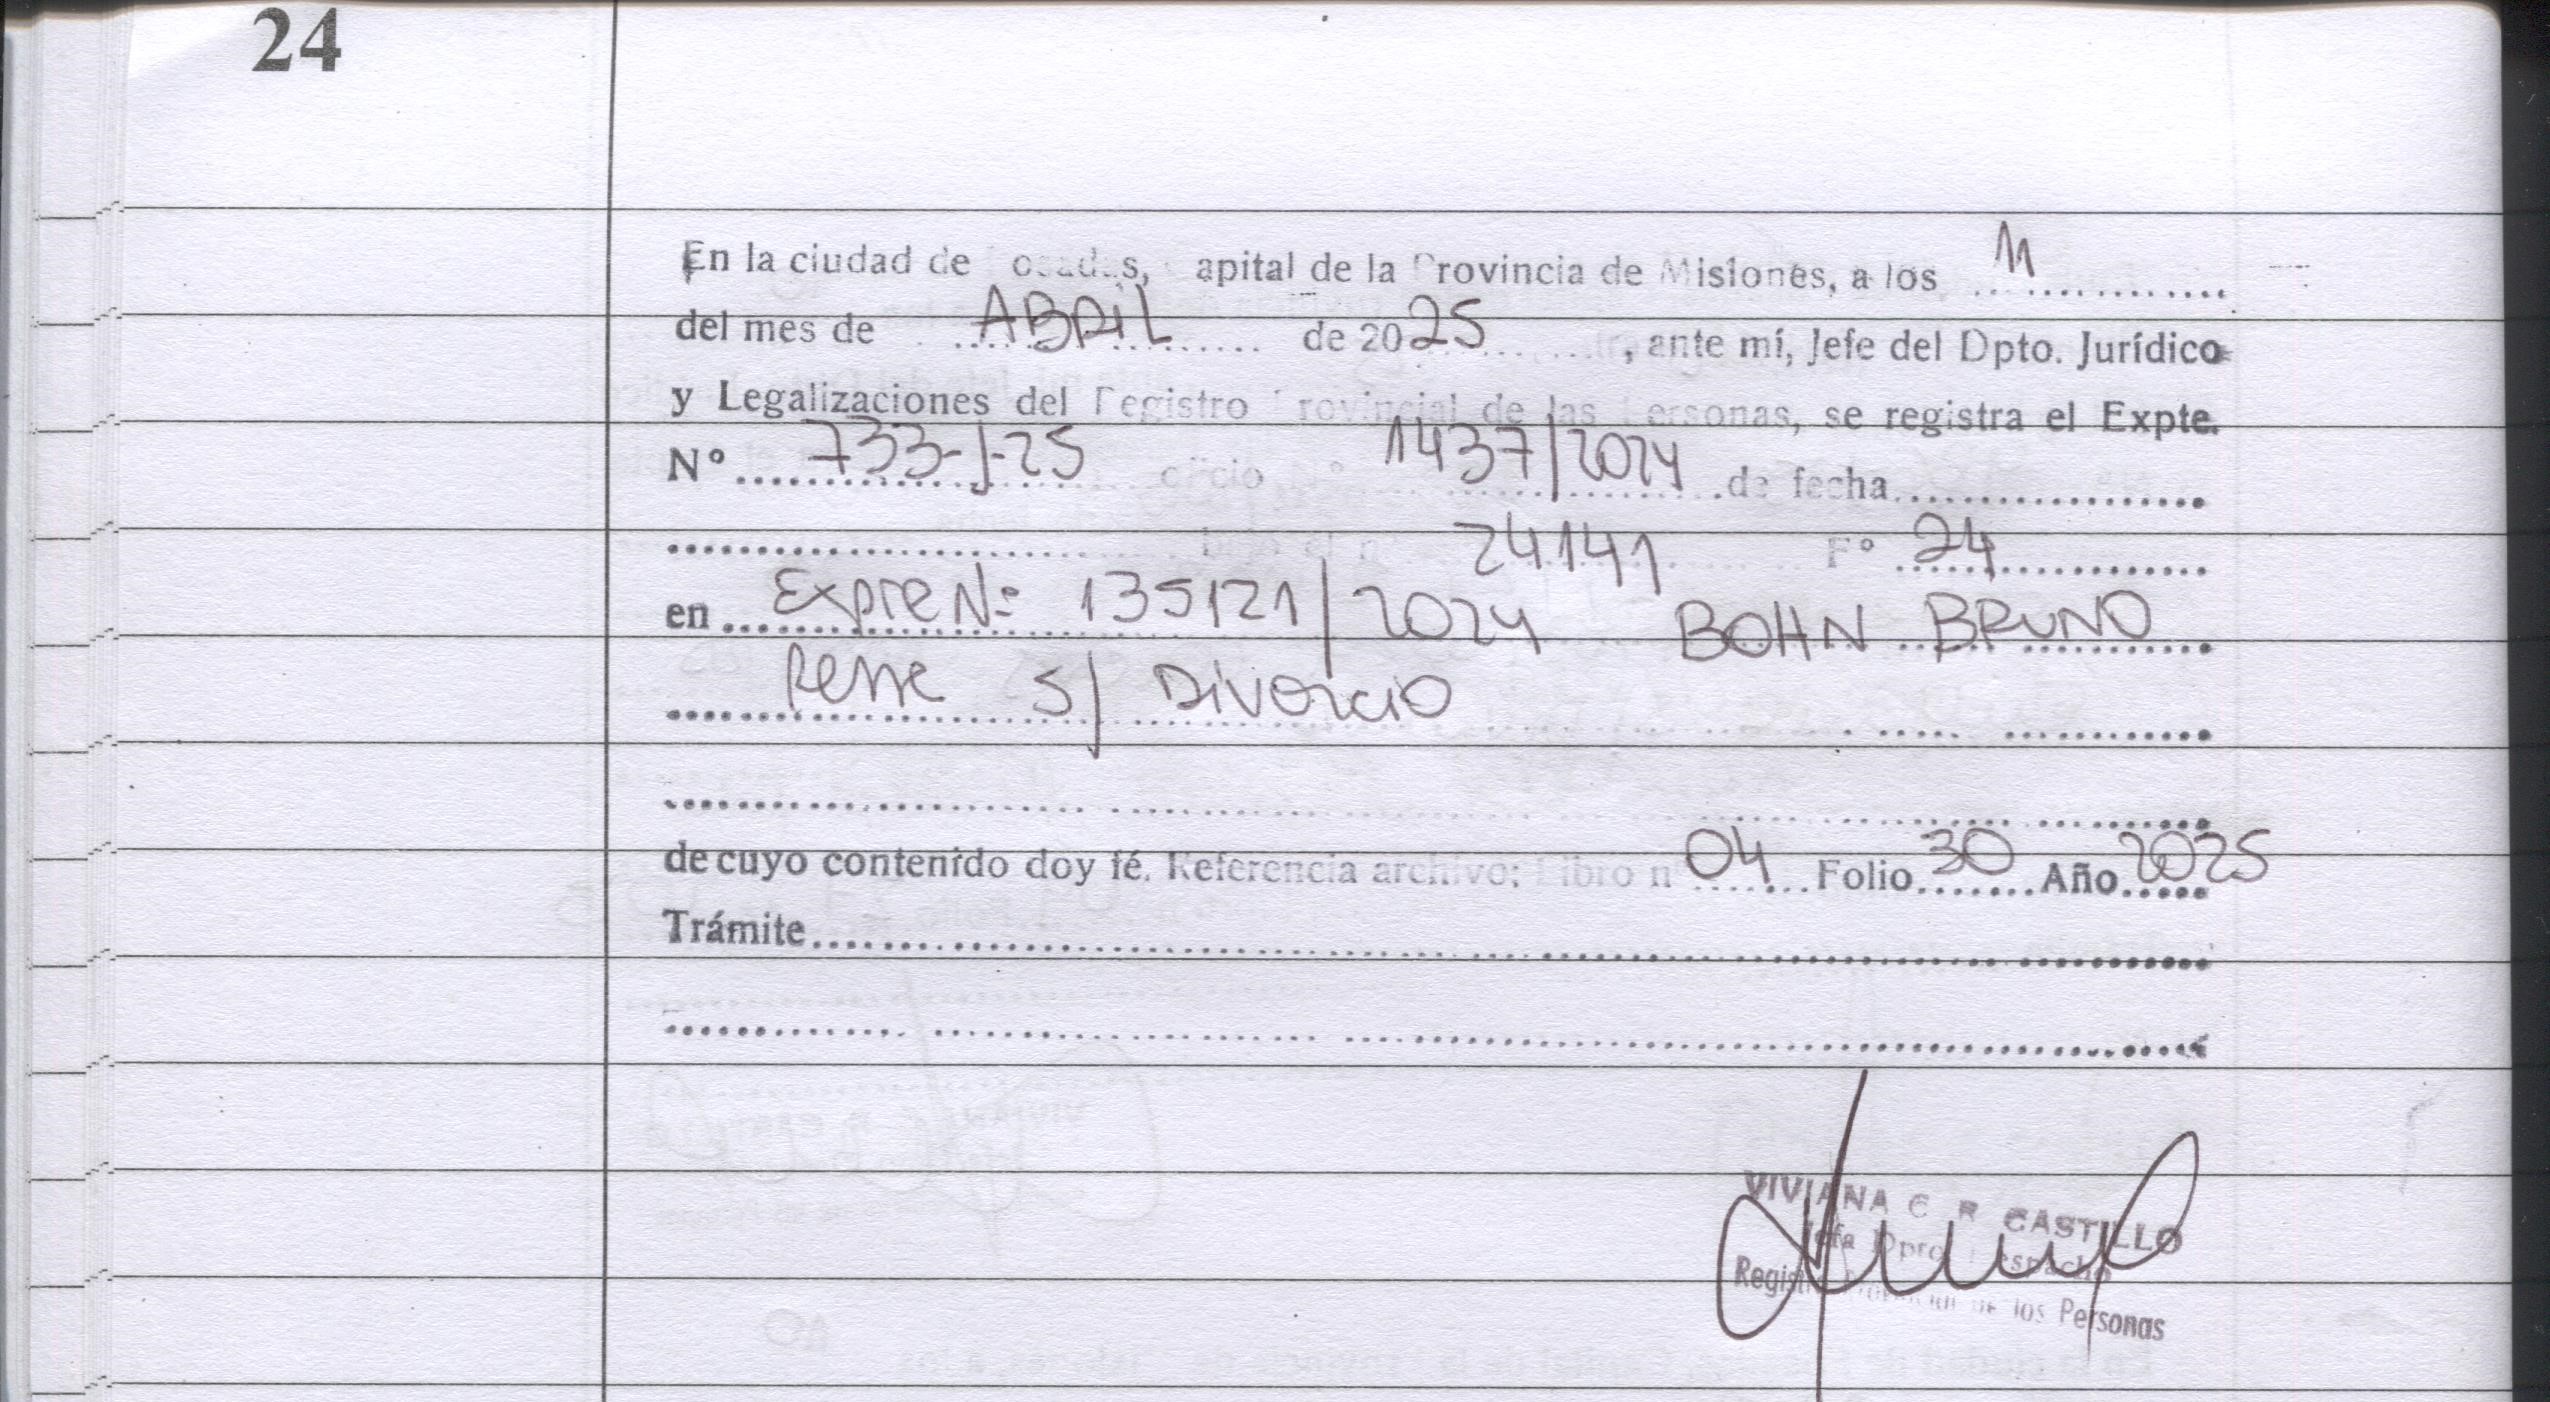 24
En la ciudad de Posadas, Capital de la Provincia de Misiones, a los 11
del mes de ABRIL de 2025, ante mí, Jefe del Dpto. Jurídico
y Legalizaciones del Registro Provincial de las Personas, se registra el Expte.
N° 733-J-25 oficio n° 1437/2024 de fecha
bajo el n° 24141 F° 24
en Expte N°: 135121/2024 BOHN BRUNO
s/ Divorcio
de cuyo contenido doy fé. Referencia archivo: Libro n° 04 Folio 30 Año 2025
Trámite
VIVIANA C R CASTILLO
Jefa Dpto Despacho
Registro Provincial de los Personas